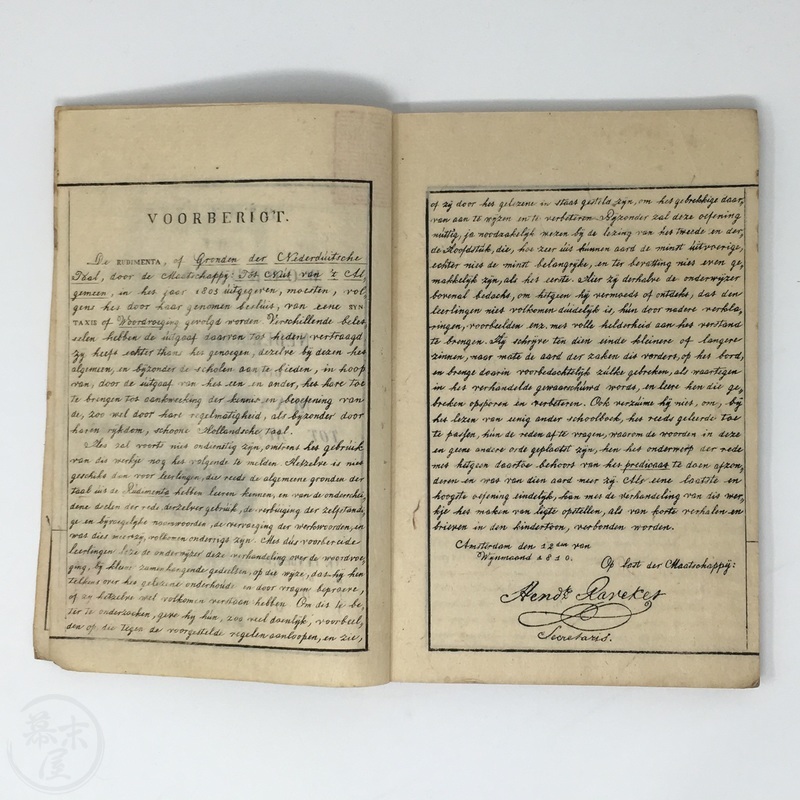 VOORBERIGT.
De RUDIMENTA, of Gronden der Nederduitsche
Taal, door de Maatschappij: Tot Nut van 't Al-
gemeen, in het jaar 1805 uitgegeven, moesten, vol-
gens het door haar genomen besluit, van eene SYN-
TAXIS of Woordvoeging gevolgd worden Verschillende belet-
selen hebben de uitgaaf daarvan tot heden vertraagd
zij heeft echter thans het genoegen, dezelve bij dezen het
algemeen, en bijzonder de scholen aan te bieden, in hoop
van, door de uitgaaf van het een en ander, het hare toe
te brengen tot aankweeking der kennis en beoefening van
de, zoo wel door hare regelmatigheid, als bijzonder door
haren rijkdom, schoone Hollandsche taal.
Het zal voorts niet ondienstig zijn, omtrent het gebruik
van dit werkje nog het volgende te melden Hetzelve is niet
geschikt dan voor leerlingen, die reeds de algemeene gronden der
taal uit de Rudimenta hebben leeren kennen, en van de onderschei-
dene deelen der rede, derzelver gebruik, de verbuiging der zelfstandi-
ge en bijvoegelijke naamwoorden, de vervoeging der werkwoorden, en
wat dies meer zij, volkomen onderrigt zijn. Met dus voorbereide
leerlingen leze de onderwijzer deze verhandeling over de woordvoe-
ging, bij kleine zamenhangende gedeelten, op die wijze, dat hij hen
telkens over het gelezene onderhoude en door vragen beproeve,
of zij hetzelve wel volkomen verstaan hebben Om dit te be-
ter te onderzoeken, geve hij hun, zoo veel doenlijk, voorbeel-
den op die tegen de voorgestelde regelen aanloopen, en zie,
of zij door het gelezene in staat gesteld zijn, om het gebrekkige daar-
van aan te wijzen en te verbeteren Bijzonder zal deze oefening
nuttig, ja noodzakelijk wezen bij de lezing van het tweede en der-
de Hoofdstuk, die, hoe zeer uit hunnen aard de minst uitvoerige,
echter niet de minst belangrijke, en ter bevatting niet even ge-
makkelijk zijn, als het eerste. Hier zij derhalve de onderwijzer
bovenal bedacht, om hetgeen hij vermoedt of ontdekt, dat den
leerlingen niet volkomen duidelijk is, hun door nadere verkla-
ringen, voorbeelden enz. met volle helderheid aan het verstand
te brengen. Hij schrijve ten dien einde kleinere of langere
zinnen, naar mate de aard der zaken dit vordert, op het bord,
en brenge daarin voorbedachtelijk zulke gebreken, als waartegen
in het verhandelde gewaarschuwd wordt, en leere hen die ge-
breken opsporen en verbeteren. Ook verzuime hij niet, om, bij
het lezen van eenig ander schoolboek, het reeds geleerde toe
te passen, hun de reden af te vragen, waarom de woorden in deze
en geene andere orde geplaatst zijn, hen het onderwerp der rede
met hetgeen daartoe behoort van het predicaat te doen afzon-
deren en wat van dien aard meer zij. Als eene laatste en
hoogste oefening eindelijk, kan met de verhandeling van dit wer-
kje het maken van ligte opstellen, als van korte verhalen en
brieven in den kindertoon, verbonden worden.
Amsterdam den 12den van
Wijnmaand 1810.
Op last der Maatschappij:
Hendk Ravekes
Secretaris.
幕末屋